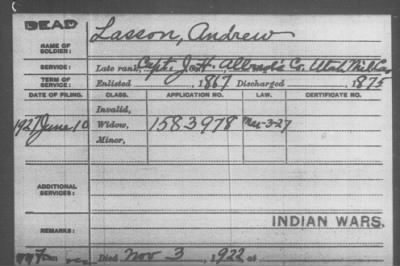 DEAD
NAME OF SOLDIER: Lasson, Andrew
SERVICE: Late rank, Capt. J. H. Co. Utah Mil.
TERM OF SERVICE: Enlisted 1867 Discharged 1875
DATE OF FILING. CLASS. APPLICATION NO. LAW. CERTIFICATE NO.
Invalid,
1927 June 10 Widow, 1583978 Mar-3-27
Minor,
ADDITIONAL SERVICES:
INDIAN WARS.
REMARKS:
Died Nov 3, 1922 at